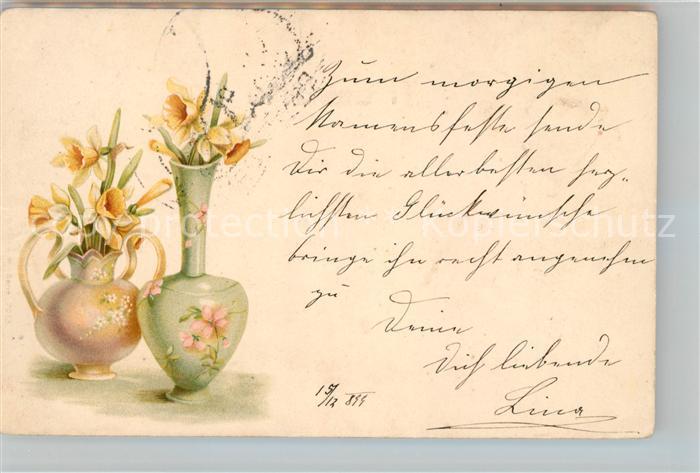 Zum morgigen
Namensfeste sende
Dir die allerbesten herz-
lichsten Glückwünsche
bringe ihn recht angenehm
zu
Deine
Dich liebende
15/12 899
Lina
protection * Kopierschutz